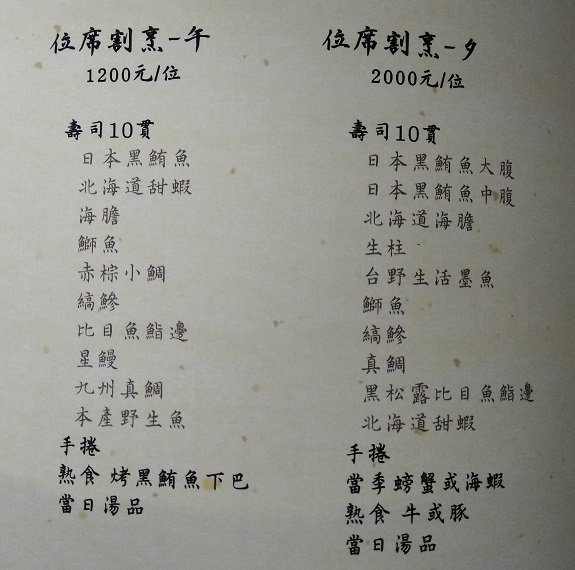 位席割烹-午
1200元/位
壽司10貫
日本黑鮪魚
北海道甜蝦
海膽
鰤魚
赤棕小鯛
縞鰺
比目魚鮨邊
星鰻
九州真鯛
本產野生魚
手捲
熟食 烤黑鮪魚下巴
當日湯品
位席割烹-夕
2000元/位
壽司10貫
日本黑鮪魚大腹
日本黑鮪魚中腹
北海道海膽
生柱
台野生活墨魚
鰤魚
縞鰺
真鯛
黑松露比目魚鮨邊
北海道甜蝦
手捲
當季螃蟹或海蝦
熟食 牛或豚
當日湯品